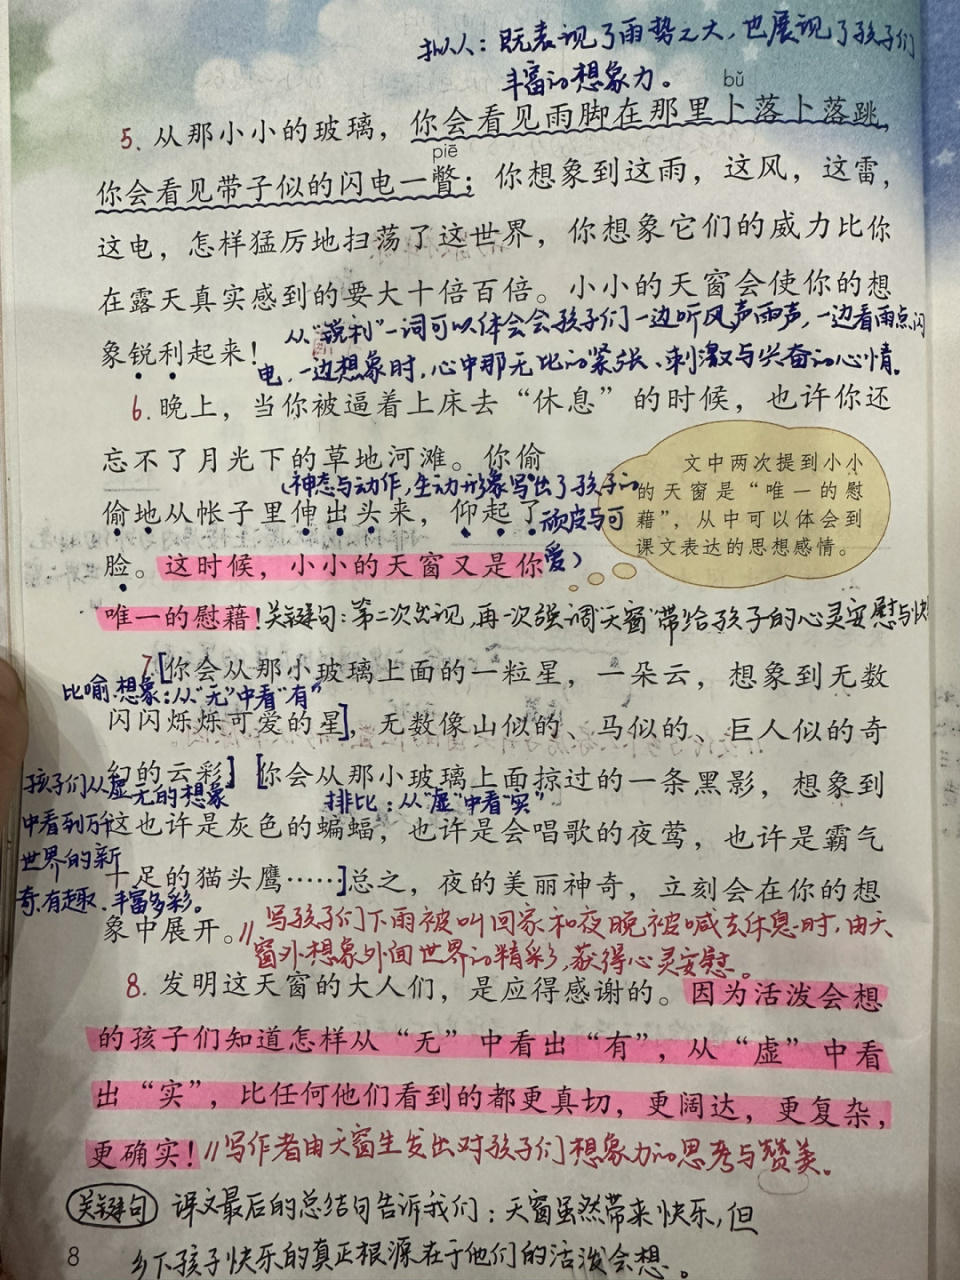 拟人：既表现了雨势之大，也展现了孩子们
丰富的想象力。
bǔ
5. 从那小小的玻璃，你会看见雨脚在那里卜落卜落跳，
piē
你会看见带子似的闪电一瞥；你想象到这雨，这风，这雷，
这电，怎样猛厉地扫荡了这世界，你想象它们的威力比你
在露天真实感到的要大十倍百倍。小小的天窗会使你的想
象锐利起来！
从“锐利”一词可以体会会孩子们一边听风声雨声，一边看雨点闪
电，一边想象时，心中那无比的紧张、刺激与兴奋的心情。
6. 晚上，当你被逼着上床去“休息”的时候，也许你还
忘不了月光下的草地河滩。你偷
偷地从帐子里伸出头来，仰起了
脸。这时候，小小的天窗又是你
唯一的慰藉！
（神态与动作，生动形象写出了孩子的
顽皮与可
爱）
文中两次提到小小
的天窗是“唯一的慰
藉”，从中可以体会到
课文表达的思想感情。
关键句：第二次出现，再一次强调“天窗”带给孩子的心灵安慰与快
7 [你会从那小玻璃上面的一粒星，一朵云，想象到无数
比喻.想象：从“无”中看“有”
闪闪烁烁可爱的星]，无数像山似的、马似的、巨人似的奇
幻的云彩] [你会从那小玻璃上面掠过的一条黑影，想象到
排比：从“虚”中看“实”
这也许是灰色的蝙蝠，也许是会唱歌的夜莺，也许是霸气
十足的猫头鹰……]总之，夜的美丽神奇，立刻会在你的想
象中展开。
孩子们从虚无的想象
中看到万千
世界的新
奇、有趣、丰富多彩。
//写孩子们下雨被叫回家和夜晚被喊去休息时，由天
窗外想象外面世界的精彩，获得心灵安慰。
8. 发明这天窗的大人们，是应得感谢的。因为活泼会想
的孩子们知道怎样从“无”中看出“有”，从“虚”中看
出“实”，比任何他们看到的都更真切，更阔达，更复杂，
更确实！//写作者由天窗生发出对孩子们想象力的思考与赞美。
关键句 课文最后的总结句告诉我们：天窗虽然带来快乐，但
乡下孩子快乐的真正根源在于他们的活泼会想。
8